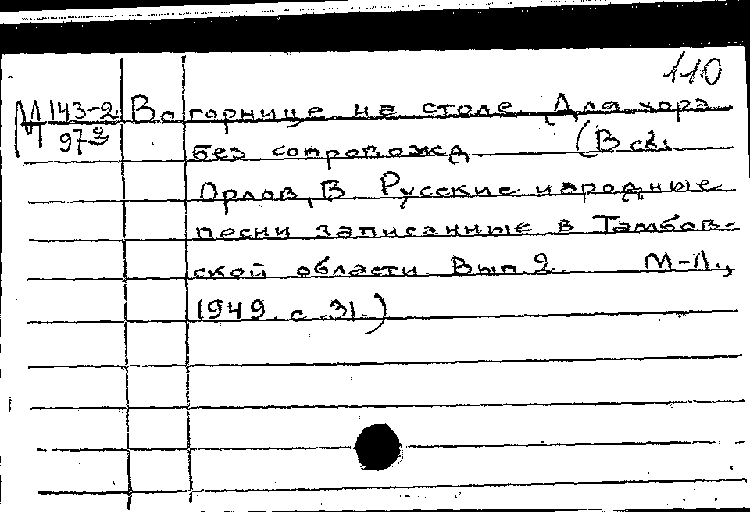 110
М 143-2 Во горнице на столе. Для хора
97 без сопровожд. (В сб.
Орлов, В. Русские народные
песни записанные в Тамбов-
ской области Вып 2. М-Л.,
1949. с 31.)